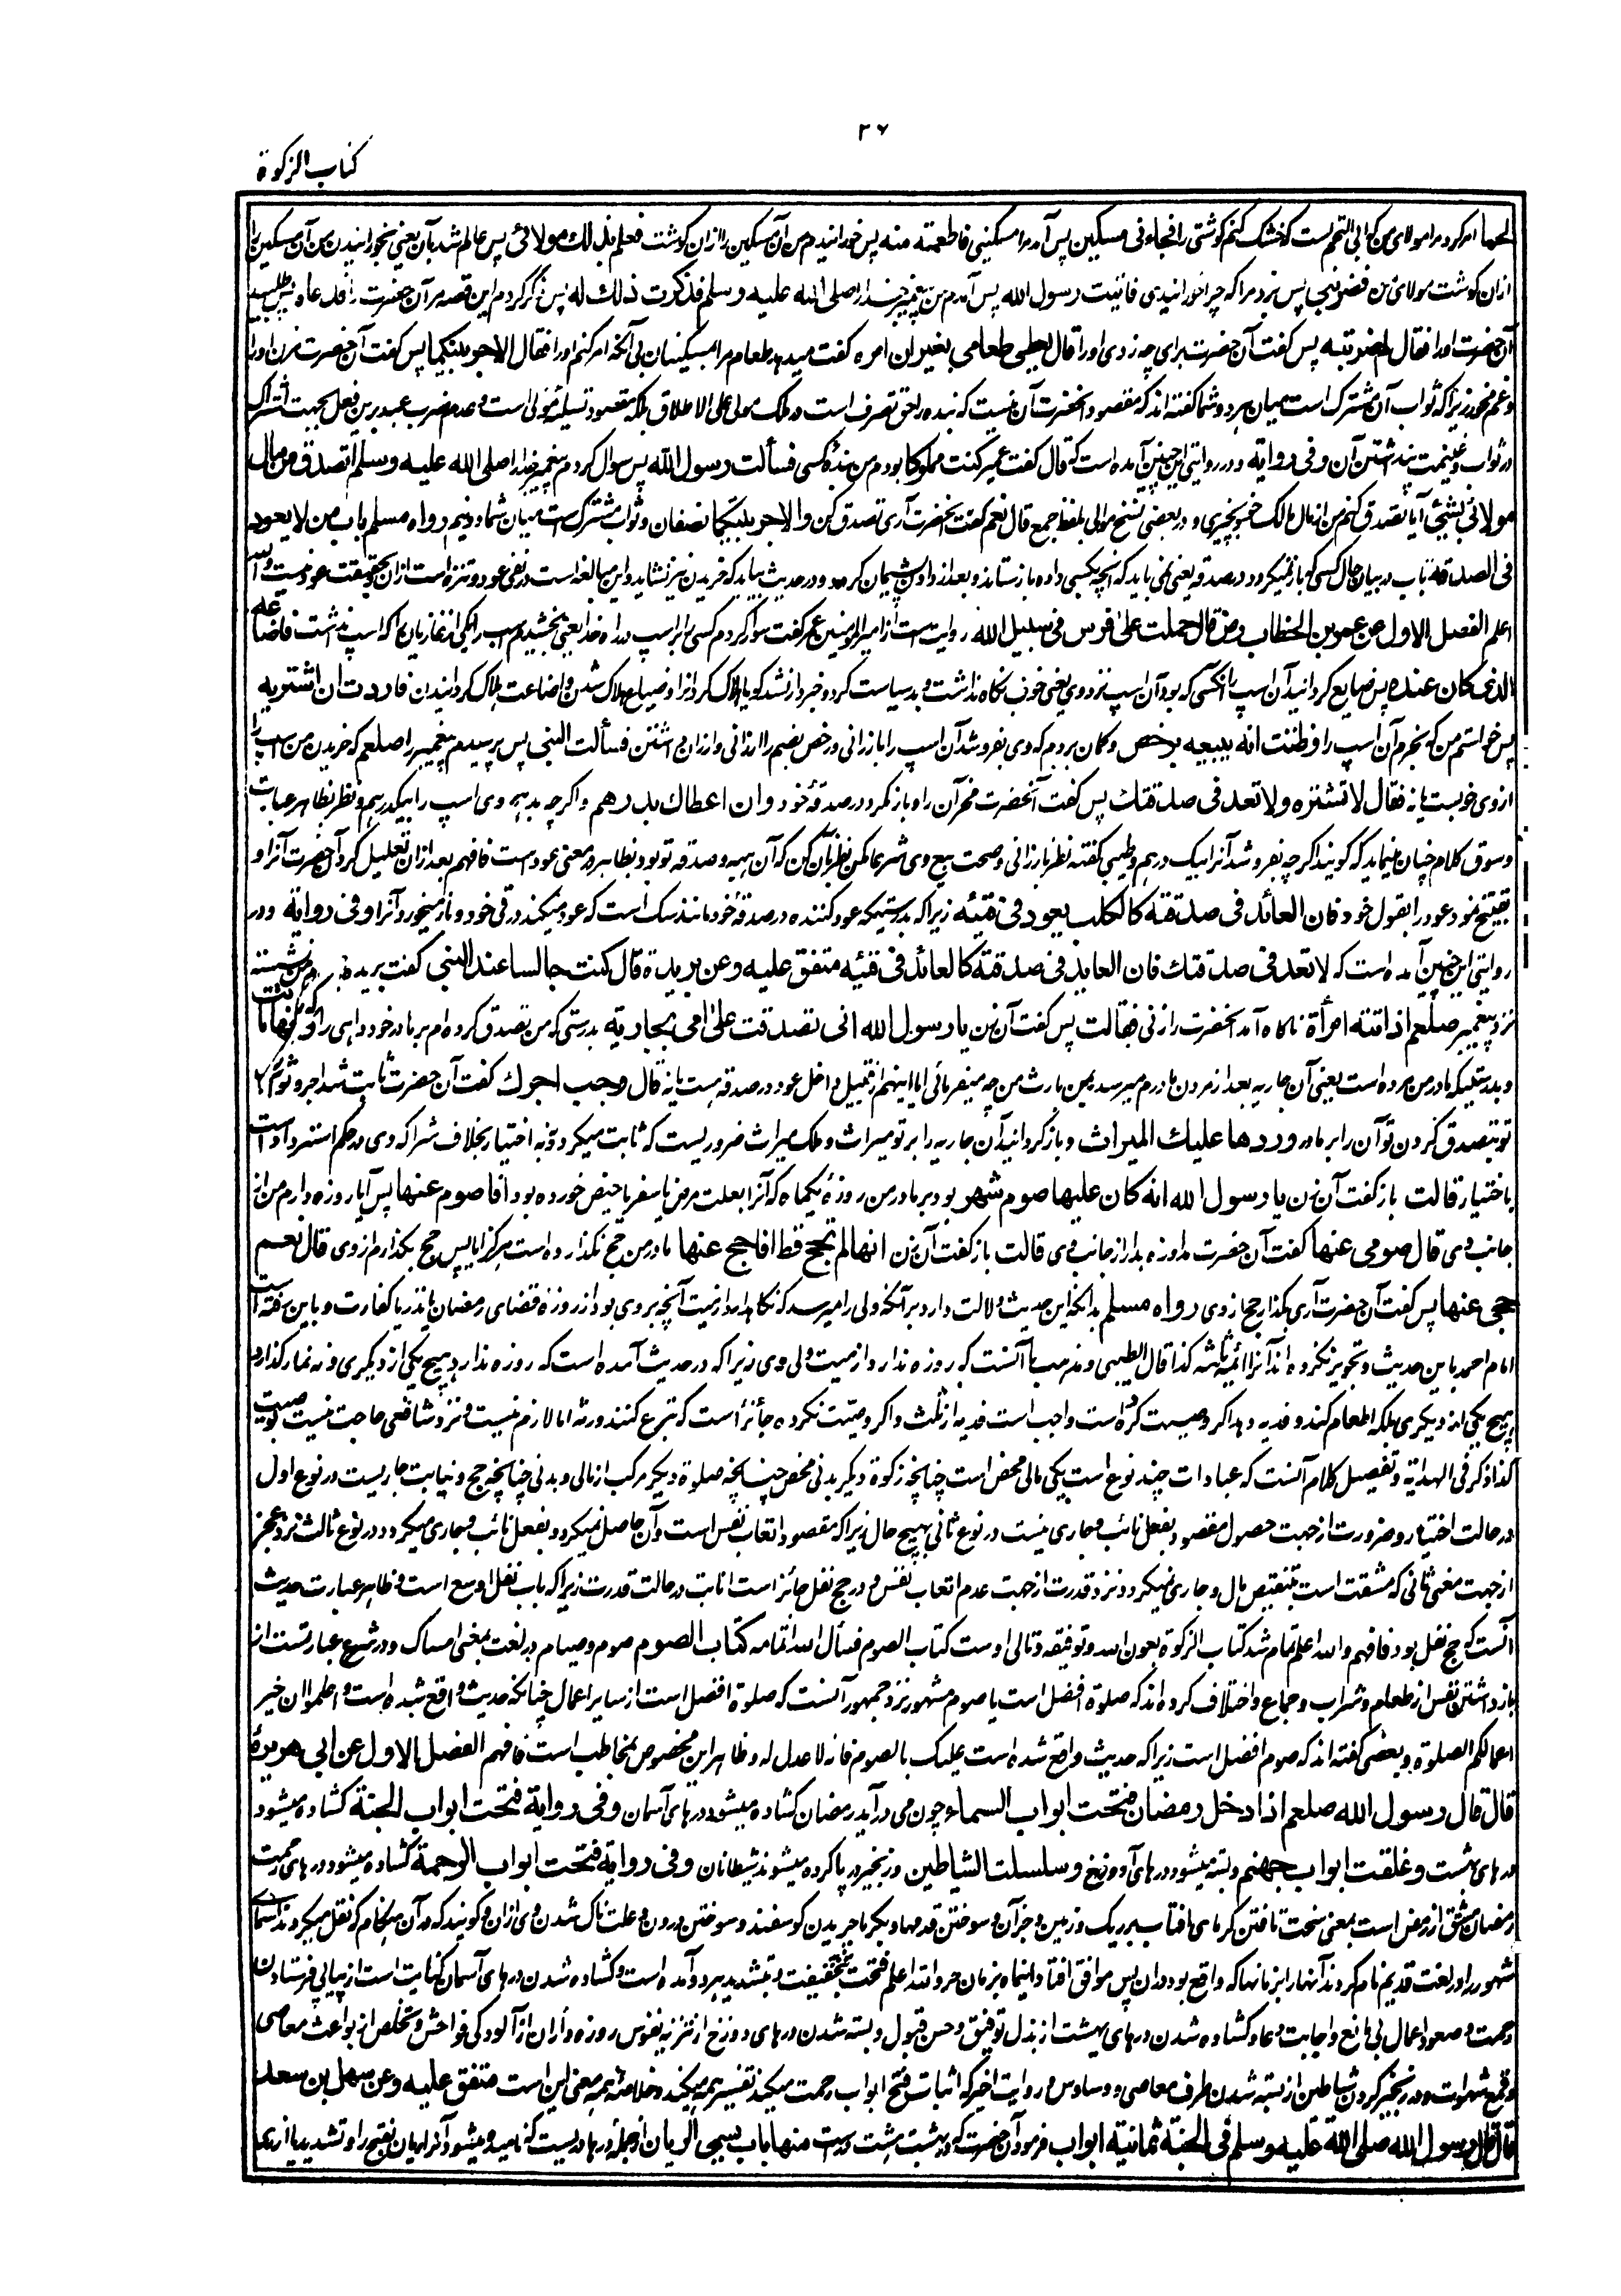 ۲۶
کتاب الزکوة
لحما امر کرد مرا مولای من که ابی اللحم است که خشک کنم گوشتی را فجاءنی مسکین پس آمد مرا مسکینی فاطعمته منه پس خورانیدم من آن مسکین را ازان گوشت فعلم بذلك مولائی پس عالم شد بآن یعنی بخورانیدن من آن مسکین را
ازان گوشت مولای من فضربنی پس بزد مرا که چرا خورانیدی فاتیت رسول الله پس آمدم من پیغمبر خدا را صلی الله علیه وسلم فذکرت ذلك له پس ذکر کردم این قصه مر آن حضرت را فدعاه پس طلبید
آن حضرت او را فقال لم ضربته پس گفت آن حضرت برای چه زدی او را قال یعطی طعامی بغیر ان امره گفت میدهد طعام مرا بمسکینان بی آنکه امر کنم او را فقال الاجر بینکما پس گفت آن حضرت مزن او را
و غم مخور زیرا که ثواب آن مشترک است میان هر دو شما گفته اند که مقصود آنحضرت آن نیست که بنده را حق تصرف است در ملک مولی علی الاطلاق بلکه مقصود تسلیهٔ مولی است و عدم ضرب عبد برین فعل بجهت اشتراک
در ثواب و غنیمت پنداشتن آن وفی روایة و در روایتی این چنین آمده است که قال گفت عمیر کنت مملوکا بودم من بندهٔ کسی فسألت رسول الله پس سوال کردم پیغمبر خدا را صلی الله علیه وسلم أتصدق من مال
مولائی بشیء آیا تصدق کنم من از مال مالک خود بچیزی و در بعضی نسخ موالی بلفظ جمع قال نعم گفت آنحضرت آری تصدق کن والاجر بینکما نصفان و ثواب مشترک است میان شما دو نیم رواه مسلم باب من لا یعود
فی الصدقة باب در بیان حال کسی که باز نمیگردد در صدقه یعنی نمی باید که آنچه بکسی داده باز ستاند و بعد از دادن پشیمان گردد و در حدیث بیاید که خریدن نیز نشاید و این مبالغه است در نفی عود و تنزه است ازان و بحقیقت عود نیست والله
اعلم الفصل الاول عن عمر بن الخطاب رض قال حملت علی فرس فی سبیل الله روایت است از امیر المومنین عمر گفت سوار کردم کسی را بر اسپ در راه خدا یعنی بخشیدم اسپ را یکی از غازیان را که اسپ نداشت فاضاعه
الذی کان عنده پس ضایع گردانید آن اسپ را آنکسی که بود آن اسپ نزد وی یعنی خوب نگاه نداشت و بد سیاست کرد و خبردار نشد گویا هلاک کرد او را و ضیاع هلاک شدن و اضاعت هلاک گردانیدن فاردت ان اشتریه
پس خواستم من که بخرم آن اسپ را وظننت انه یبیعه برخص و گمان بردم که وی بفروشد آن اسپ را بارزانی و رخص بضم را ارزانی و ارزان داشتن فسألت النبی پس پرسیدم پیغمبر را صلعم که خریدن من اسپ را
از وی خوبست یا نه فقال لا تشتره ولا تعد فی صدقتك پس گفت آنحضرت مخر آن را و باز مگرد در صدقهٔ خود وان اعطاك بدرهم و اگر چه بدهد وی اسپ را بیکدرهم و نظر بظاهر عبارت
و سوق کلام چنان مینماید که گویند اگر چه بفروشد آنرا بیک درهم و طیبی گفته نظر بارزانی و صحت بیع وی شرعا مکن نظر بآن کن که آن هبه و صدقه تو بود و بظاهره معنی عود است فافهم بعد ازان تعلیل کرد آنحضرت آنرا و
تقبیح نمود عود را بقول خود فان العائد فی صدقته كالكلب یعود فی قیئه زیرا که بدرستیکه عود کننده در صدقهٔ خود مانند سگ است که عود میکند در قی خود و باز میخورد آنرا وفی روایة و در
روایتی این چنین آمده است که لا تعد فی صدقتك فان العاید فی صدقته كالعائد فی قیئه متفق علیه وعن بریدة قال کنت جالسا عند النبی گفت بریده بودم من نشسته
نزد پیغمبر صلعم اذ اتته امرأة ناگاه آمد آنحضرت را زنی فقالت پس گفت آن زن یا رسول الله انی تصدقت علی امی بجاریة بدرستی که من تصدق کرده ام بر مادر خود داهی را وانها ماتت
و بدرستیکه مادر من مرده است یعنی آن جاریه بعد از مردن مادرم میرسد بمن بارث من چه میفرمائی آیا اینهم از قبیل داخل عود در صدقه هست یا نه قال وجب اجرك گفت آن حضرت ثابت شد اجر و ثواب
تو بتصدق کردن تو آن را بر مادر وردها علیك المیراث و باز گردانید آن جاریه را بر تو میراث و ملک میراث ضروریست که ثابت میگردد نه به اختیار بخلاف شرا که وی در حکم استرداد است
باختیار قالت باز گفت آن زن یا رسول الله انه کان علیها صوم شهر بود بر مادر من روزهٔ یکماه که آنرا بعلت مرض یا سفر یا حیض خورده بود افاصوم عنها پس آیا روزه دارم من از
جانب وی قال صومی عنها گفت آن حضرت روزه بدار از جانب وی قالت باز گفت آن زن انها لم تحج قط افاحج عنها مادر من حج نگذارده است هرگز آیا پس حج بگذارم از وی قال نعم
حجی عنها پس گفت آن حضرت آری بگذار حج از وی رواه مسلم بدانکه این حدیث دلالت دارد بر آنکه ولی را میرسد که نگاهدارد از میت آنچه بر وی بود از روزه قضای رمضان یا نذر یا کفارت و باین رفته است
امام احمد باین حدیث و تجویز نکرده اند آنرا ائمه ثلثه کذا قال الطیبی و مذهب ما آنست که روزه ندارد از میت ولی وی زیرا که در حدیث آمده است که روزه ندارد هیچ یکی از دیگری و نه نماز گذارد
هیچ یکی از دیگری بلکه اطعام کند و فدیه دهد اگر وصیت کرده است واجب است فدیه از ثلث و اگر وصیت نکرده جائز است که تبرع کنند ورثه اما لازم نیست و نزد شافعی حاجت نیست بوصیت
کذا ذکر فی الهدایه و تفصیل کلام آنست که عبادات چند نوع است یکی مالی محض است چنانچه زکوة دیگر بدنی محض چنانچه صلوة دیگر مرکب از مالی و بدنی چنانچه حج و نیابت جاریست در نوع اول
در حالت اختیار و ضرورت از جهت حصول مقصود بفعل نائب و جاری نیست در نوع ثانی بهیچ حال زیرا که مقصود اتعاب نفس است و آن حاصل نمیگردد بفعل نائب و جاری میگردد در نوع ثالث نزد عجز
از جهت معنی ثانی که مشقت است بتنقیص مال و جاری نمیگردد نزد قدرت از جهت عدم اتعاب نفس و در حج نفل جائز است انابت در حالت قدرت زیرا که باب نفل اوسع است و ظاهر عبارت حدیث
آنست که حج نفل بود فافهم والله اعلم تمام شد کتاب الزکوة بعون الله و توفیقه و تالی اوست کتاب الصوم فسأل الله اتمامه کتاب الصوم صوم و صیام در لغت بمعنی امساک و در شرع عبارتست از
باز داشتن نفس از طعام و شراب و جماع و اختلاف کرده اند که صلوة افضل است یا صوم مشهور نزد جمهور آنست که صلوة افضل است از سایر اعمال چنانکه حدیث واقع شده است واعلموا ان خیر
اعمالکم الصلوة و بعضی گفته اند که صوم افضل است زیرا که حدیث واقع شده است علیک بالصوم فانه لا عدل له و ظاهر این مخصوص بمخاطب است فافهم الفصل الاول عن ابی هریرة
قال قال رسول الله صلعم اذا دخل رمضان فتحت ابواب السماء چون می درآید رمضان کشاده میشود درهای آسمان وفی روایة فتحت ابواب الجنة کشاده میشود
درهای بهشت وغلقت ابواب جهنم و بسته میشود درهای دوزخ وسلسلت الشیاطین و زنجیر در پا کرده میشوند شیطانان وفی روایة فتحت ابواب الرحمة کشاده میشود درهای رحمت
رمضان مشتق از رمض است بمعنی سخت تافتن گرمای افتاب بر ریگ و زمین و جز آن و سوختن قدمها و جگر ما چریدن گوسفند و سوختن درون و علت ناک شدن وی ازان و گویند که در آن هنگام که نقل میکردند اسمای
شهور را از لغت قدیم نام کردند آنها را بزمانها که واقع بود دران پس موافق افتاد اینماه بزمان حر والله اعلم فتحت بتخفیف و بتشدید هر دو آمده است و کشاده شدن درهای آسمان کنایت است از پیاپی فرستادن
رحمت و صعود اعمال بی مانع و اجابت دعا و کشاده شدن درهای بهشت از بذل توفیق و حسن قبول و بسته شدن درهای دوزخ از تنزیه نفوس روزه داران از آلودگی فواحش و تخلص از بواعث معاصی
و قمع شهوات و در زنجیر کردن شیاطین از بسته شدن طرف معاصی و وساوس و روایت اخیر که اثبات فتح ابواب رحمت میکند تفسیر همه میکند و خلاصه همه معنی این است متفق علیه وعن سهل بن سعد
قال قال رسول الله صلی الله علیه وسلم فی الجنة ثمانیة ابواب فرمود آن حضرت که در بهشت هشت در است منها باب یسمی الریان از جمله درها دریست که نامیده میشود آنرا ریان بفتح را و تشدید یا از ری